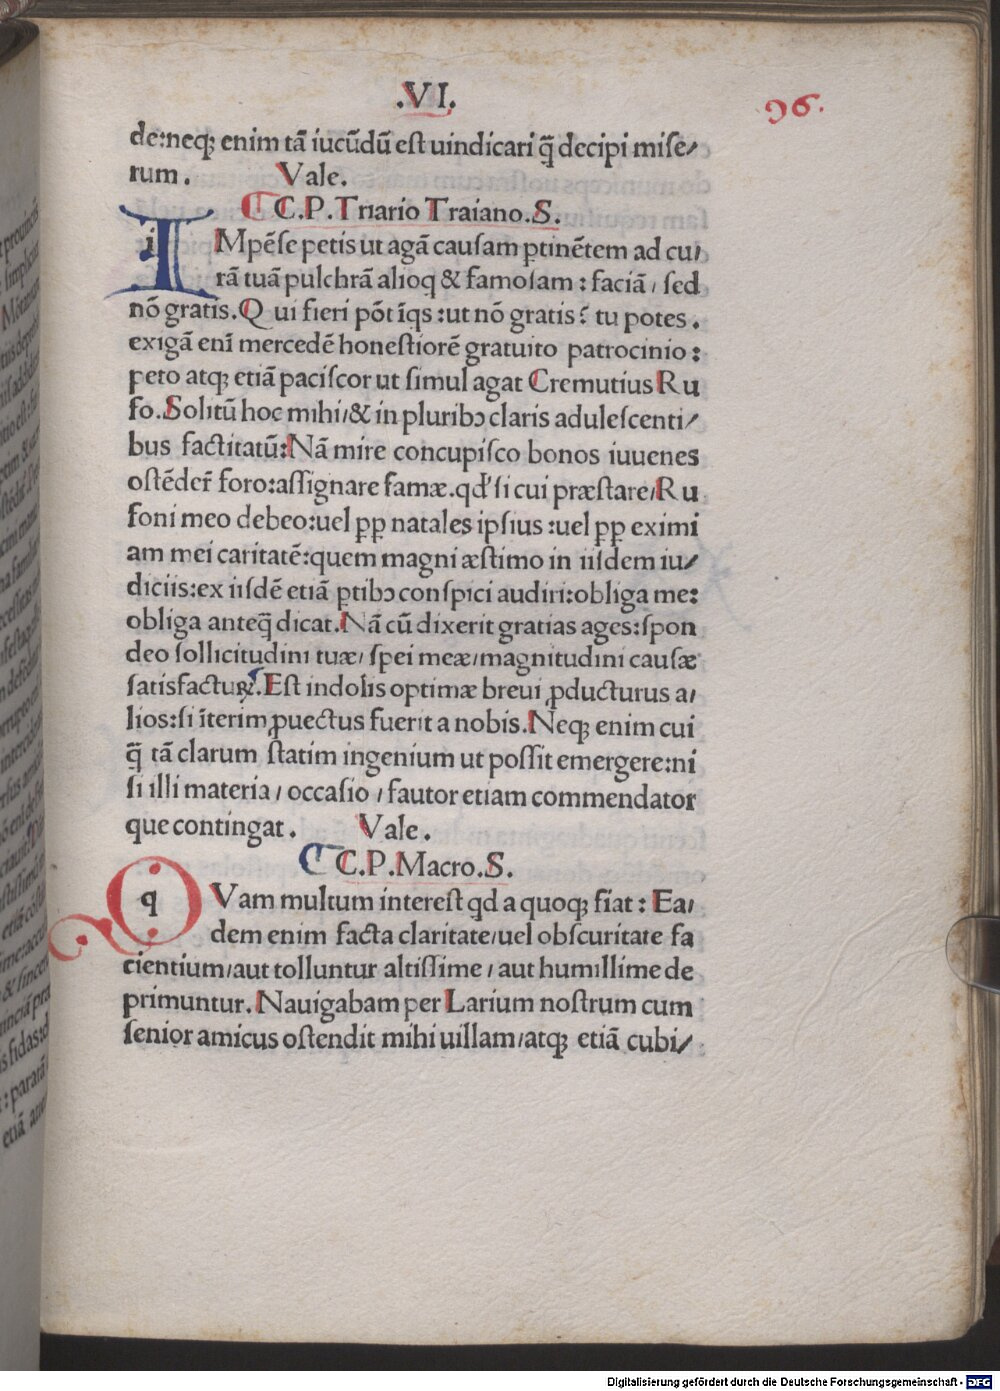 .VI.
96.
de:neq; enim tā iucūdū est uindicari q̄ decipi mise/
rum. Vale.
C.P. Triario Traiano.S.
IMpēse petis ut agā causam ꝑtinētem ad cu/
rā tuā pulchrā alioq & famosam : faciā / sed
nō gratis. Qui fieri pōt īqs :ut nō gratis? tu potes.
exigā eni mercedē honestiorē gratuito patrocinio:
peto atq; etiā paciscor ut simul agat Cremutius Ru
fo. Solitū hoc mihi/& in pluribꝯ claris adulescenti/
bus factitatū: Nā mire concupisco bonos iuuenes
ostēder̄ foro:assignare famæ.qđ si cui præstare/Ru
foni meo debeo:uel ꝓꝑ natales ipsius :uel ꝓꝑ eximi
am mei caritatē:quem magni æstimo in iisdem iu/
diciis:ex iisdē etiā ꝑtibꝯ conspici audiri:obliga me:
obliga anteq̄ dicat. Nā cū dixerit gratias ages:spon
deo sollicitudini tuæ/ spei meæ/magnitudini causæ
satisfactuꝝ. Est indolis optimæ breui ꝓducturus a/
lios:si īterim ꝓuectus fuerit a nobis. Neq; enim cui
q̄ tā clarum statim ingenium ut possit emergere:ni
si illi materia / occasio / fautor etiam commendator
que contingat. Vale.
C.P. Macro.S.
QVam multum interest qd a quoq; fiat : Ea/
dem enim facta claritate/uel obscuritate fa
cientium/aut tolluntur altissime / aut humillime de
primuntur. Nauigabam per Larium nostrum cum
senior amicus ostendit mihi uillam/atq; etiā cubi/
Digitalisierung gefördert durch die Deutsche Forschungsgemeinschaft - DFG